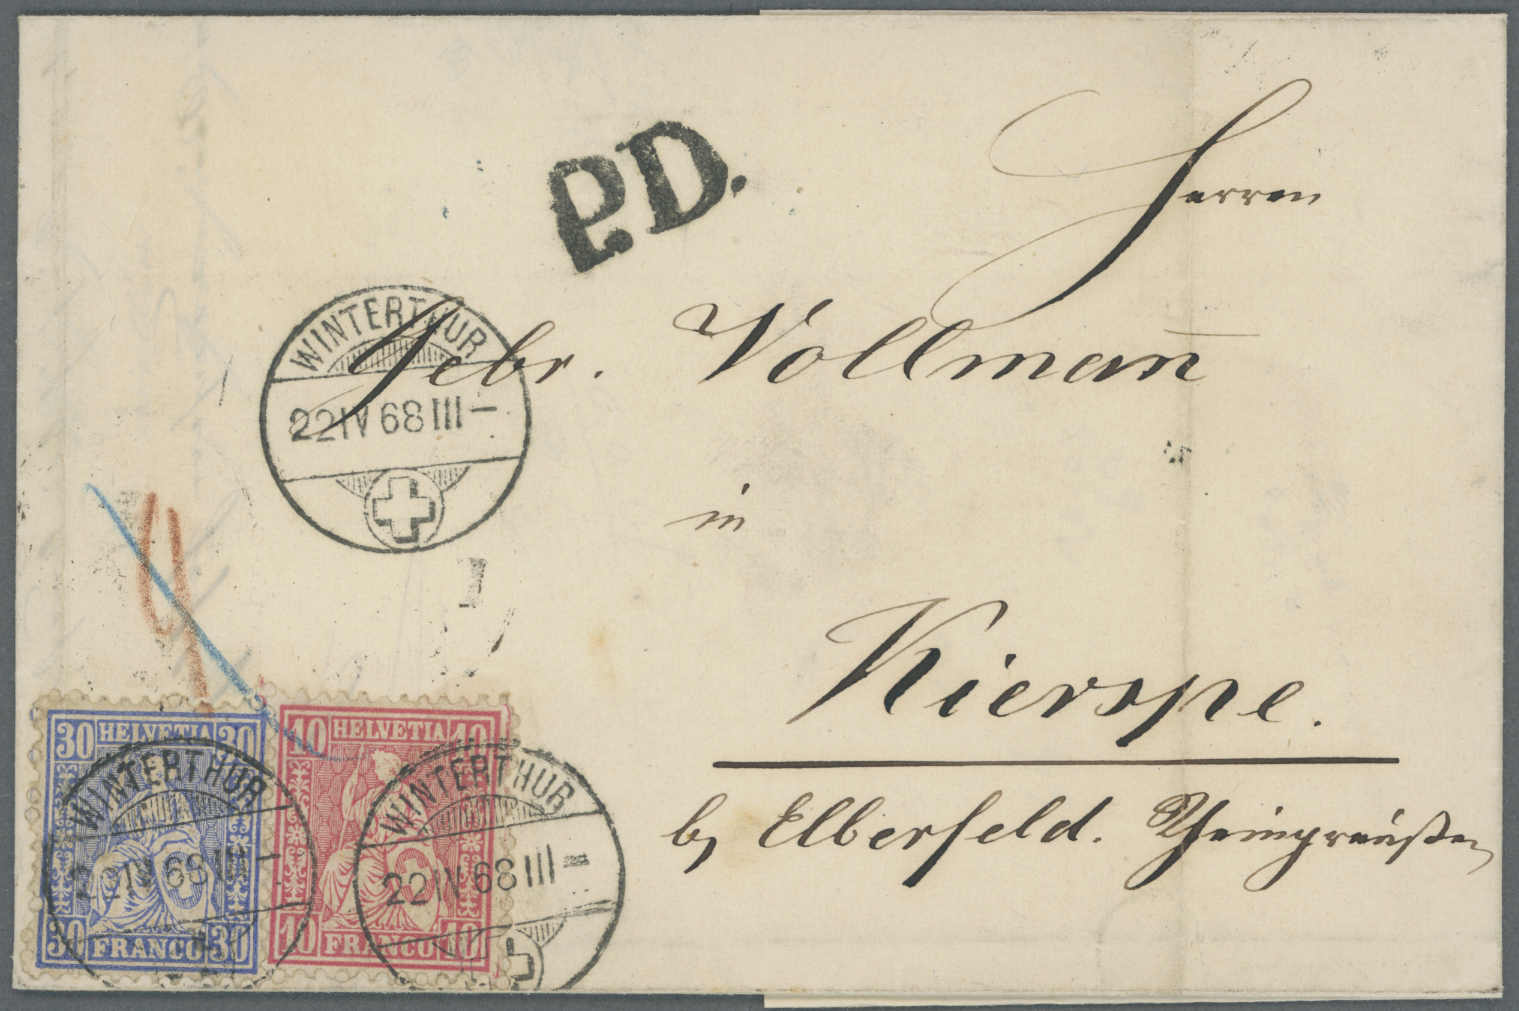 P.D.
Herren
WINTERTHUR
Gebr. Vollman̅
22 IV 68 III –
in
Kierspe.
b/ Elberfeld. Rheinpreußen
30 HELVETIA 30
10 HELVETIA 10
WINTERTHUR
WINTERTHUR
22 IV 68 III –
22 IV 68 III =
30 FRANCO 30
10 FRANCO 10